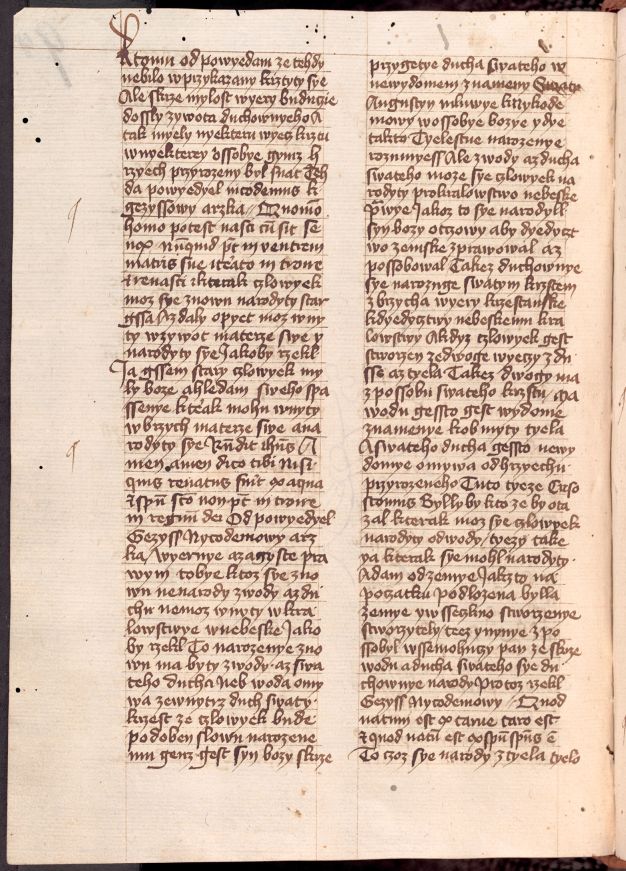 Ktomu od powyedam ze tehdy
nebilo wprzykazany krztyty sye
Ale skrze mylost wyery buducie
dossly zywota duchownyeho A
tak myely nyekteru wyecz krztu
wnyekterey ossobye gymz h
rzyech przyrozeny byl snat Teh
da powyedyel nicodemus k
gezyssowy arzka Quomo
homo potest nasci cu sit se
nex Nuquid pt in ventrem
matris sue iterato introire
et renasci kterak czlowyek
moz sye znowu narodyty star
gssa Azdaly opyet moz wny
ty wzywot materze swe y
narodyty sye Jakoby rzekl
Ja gssem stary czlowyek my
ly boze ahledam sweho spa
ssenye kterak mohu wnyty
wbrzych materze swe ana
rodyty sye Rndit ihus A
men amen dico tibi Nisi
quis renatus fuit ex aqua
et spu sco non pt introire
in regnu dei Od powyedyel
Gezyss Nycodemowy arz
ka wyernye azagyste pra
wym tobye ktoz sye zno
wu nenarody zwody azdu
chu nemoz wnyty wkra
lowstwye wnebeske Jako
by rzekl To narozenye zno
wu ma byty zwody azswa
teho ducha Neb woda omy
wa zewnytrz duch swaty
krzest ze czlowyek bude
podoben slowu narozene
mu genz gest syn bozy skrze
przygetye ducha swateho w
newydomem znameny Swaty
Augustyn mluwye kniykode
mowy wossobye bozye ydye
takto Tyelestne narozenye
rozumyess Ale zwody azducha
swateho moze sye czlowyek na
rodyty prokralowstwo nebeske
prwye Jakoz to sye narodyll
syn bozy otczowy aby dyedyczt
wo zemske zprawowal az
possobowal Takez duchownye
sye narozuge swatym krztem
zbrzycha wyery krzestanske
kdyedyctwy nebeskemu kra
lowstwy Akdyz czlowyek gest
stworzen zedwoge wyeczy zdu
sse aztyela Takez dwogy ma
zpossobu swateho krzstu Ma
wodu gessto gest wydome
znamenye kobmyty tyela
Aswateho ducha gessto newy
domye omywa odhrzyechu
przyrozeneho Tuto tyeze Criso
stomus Byllyby kto ze by ota
zal kterak moz sye czlowyek
narodyty odwody tyezy take
ya kterak sye mohl narodyty
Adam odzemye Jakzto na
poczatku podlozena bylla
zemye ywsseczkno stworzenye
stworzytely tez ynynye zpo
ssobyl wssemohuczy pan ze skrze
wodu aducha swateho sye du
chownye narody Protoz rzekl
Gezyss Nycodemowy Quod
natum est ex carne caro est
et quod natu est ex spu spus e
To czoz sye narody ztyela tyelo